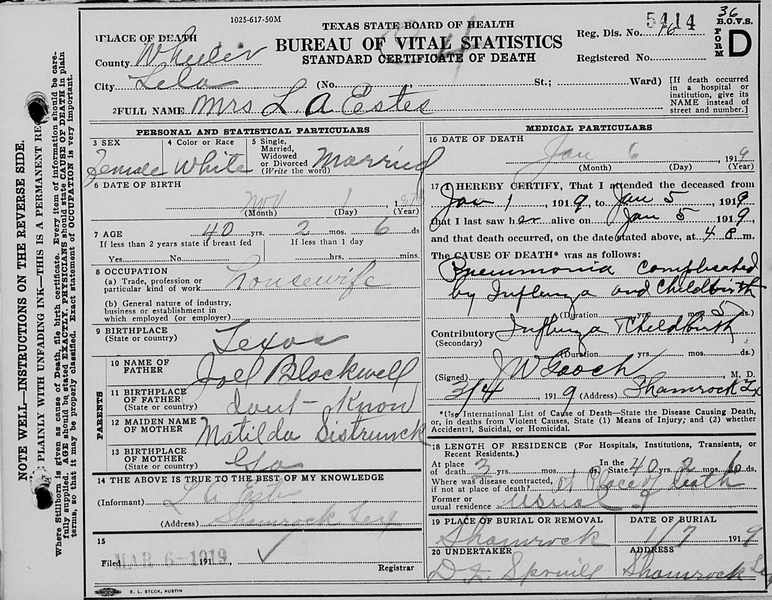 1025-617-50M
TEXAS STATE BOARD OF HEALTH
BUREAU OF VITAL STATISTICS
STANDARD CERTIFICATE OF DEATH
5414
36
B.O.V.S.
FORM D
Reg. Dis. No. 16
Registered No.
1 PLACE OF DEATH
County Wheeler
City Lela (No. St.; Ward)
[If death occurred in a hospital or institution, give its NAME instead of street and number.]
2 FULL NAME Mrs L. A Estes
PERSONAL AND STATISTICAL PARTICULARS
3 SEX Female
4 Color or Race White
5 Single, Married, Widowed or Divorced (Write the word) Married
6 DATE OF BIRTH
Nov 1
(Month) (Day) (Year)
7 AGE 40 yrs. 2 mos. 6 ds
If less than 2 years state if breast fed
If less than 1 day
Yes No hrs. mins.
8 OCCUPATION
(a) Trade, profession or particular kind of work Housewife
(b) General nature of industry, business or establishment in which employed (or employer)
9 BIRTHPLACE
(State or country) Texas
PARENTS
10 NAME OF FATHER Joel Blackwell
11 BIRTHPLACE OF FATHER (State or country) dont Know
12 MAIDEN NAME OF MOTHER Matilda Sistrunck
13 BIRTHPLACE OF MOTHER (State or country) Ga
14 THE ABOVE IS TRUE TO THE BEST OF MY KNOWLEDGE
(Informant) L A Estes
(Address) Shamrock Tex
15
Filed MAR 6-1919 191
Registrar
MEDICAL PARTICULARS
16 DATE OF DEATH
Jan 6 1919
(Month) (Day) (Year)
17 I HEREBY CERTIFY, That I attended the deceased from
Jan 1 1919, to Jan 5 1919
that I last saw her alive on Jan 5 1919
and that death occurred, on the date stated above, at 4 8 m.
The CAUSE OF DEATH* was as follows:
Pneumonia complicated
by Influenza and Childbirth
(Duration) yrs. mos. 5 ds.
Contributory Influnza & Childbirth
(Secondary)
(Duration) yrs. mos. ds.
(Signed) J W Gooch M. D.
3/4 1919 (Address) Shamrock Tx
*Use International List of Cause of Death—State the Disease Causing Death, or, in deaths from Violent Causes, State (1) Means of Injury; and (2) whether Accidental, Suicidal, or Homicidal.
18 LENGTH OF RESIDENCE (For Hospitals, Institutions, Transients, or Recent Residents.)
At place of death 3 yrs. mos. ds. In the State 40 2 6 ds
Where was disease contracted, if not at place of death? at Place of death
Former or usual residence usual
19 PLACE OF BURIAL OR REMOVAL
Shamrock
DATE OF BURIAL
1/7 1919
20 UNDERTAKER
D F Spruill
ADDRESS
Shamrock Tex
E. L. STECK, AUSTIN
NOTE WELL—INSTRUCTIONS ON THE REVERSE SIDE.
PLAINLY WITH UNFADING INK—THIS IS A PERMANENT RE
Where Stillborn is given as cause of Death, file birth certificate. Every item of information should be carefully supplied. AGE should be stated EXACTLY. PHYSICIANS should state CAUSE OF DEATH in plain terms, so that it may be properly classified. Exact statement of OCCUPATION is very important.